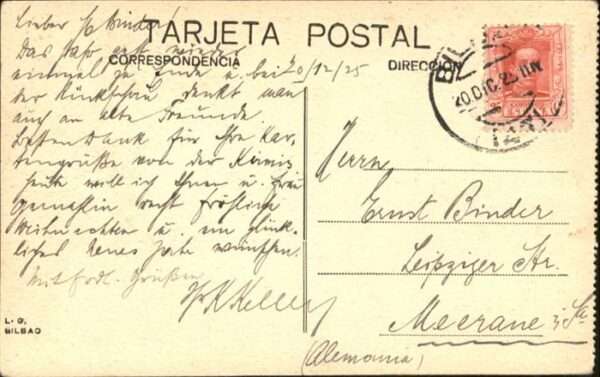 TARJETA POSTAL
CORRESPONDENCIA
DIRECCIÓN
Lieber Binder!
Das Jahr geht wieder
20/12/25
einmal zu Ende u. bei
der Rückschau denkt man
auch an alte Freunde.
Besten Dank für Ihre Kar-
tengrüße von der
Heute will ich Ihnen u. Frau
Gemahlin recht fröhliche
Weihnachten u. ein glück-
liches neues Jahr wünschen.
Mit frdl. Grüßen
Kelley
L. G.
BILBAO
BILBAO
20.DIC.25
Herrn
Ernst Binder
Leipziger Str.
Meerane i/Sa
(Alemania)